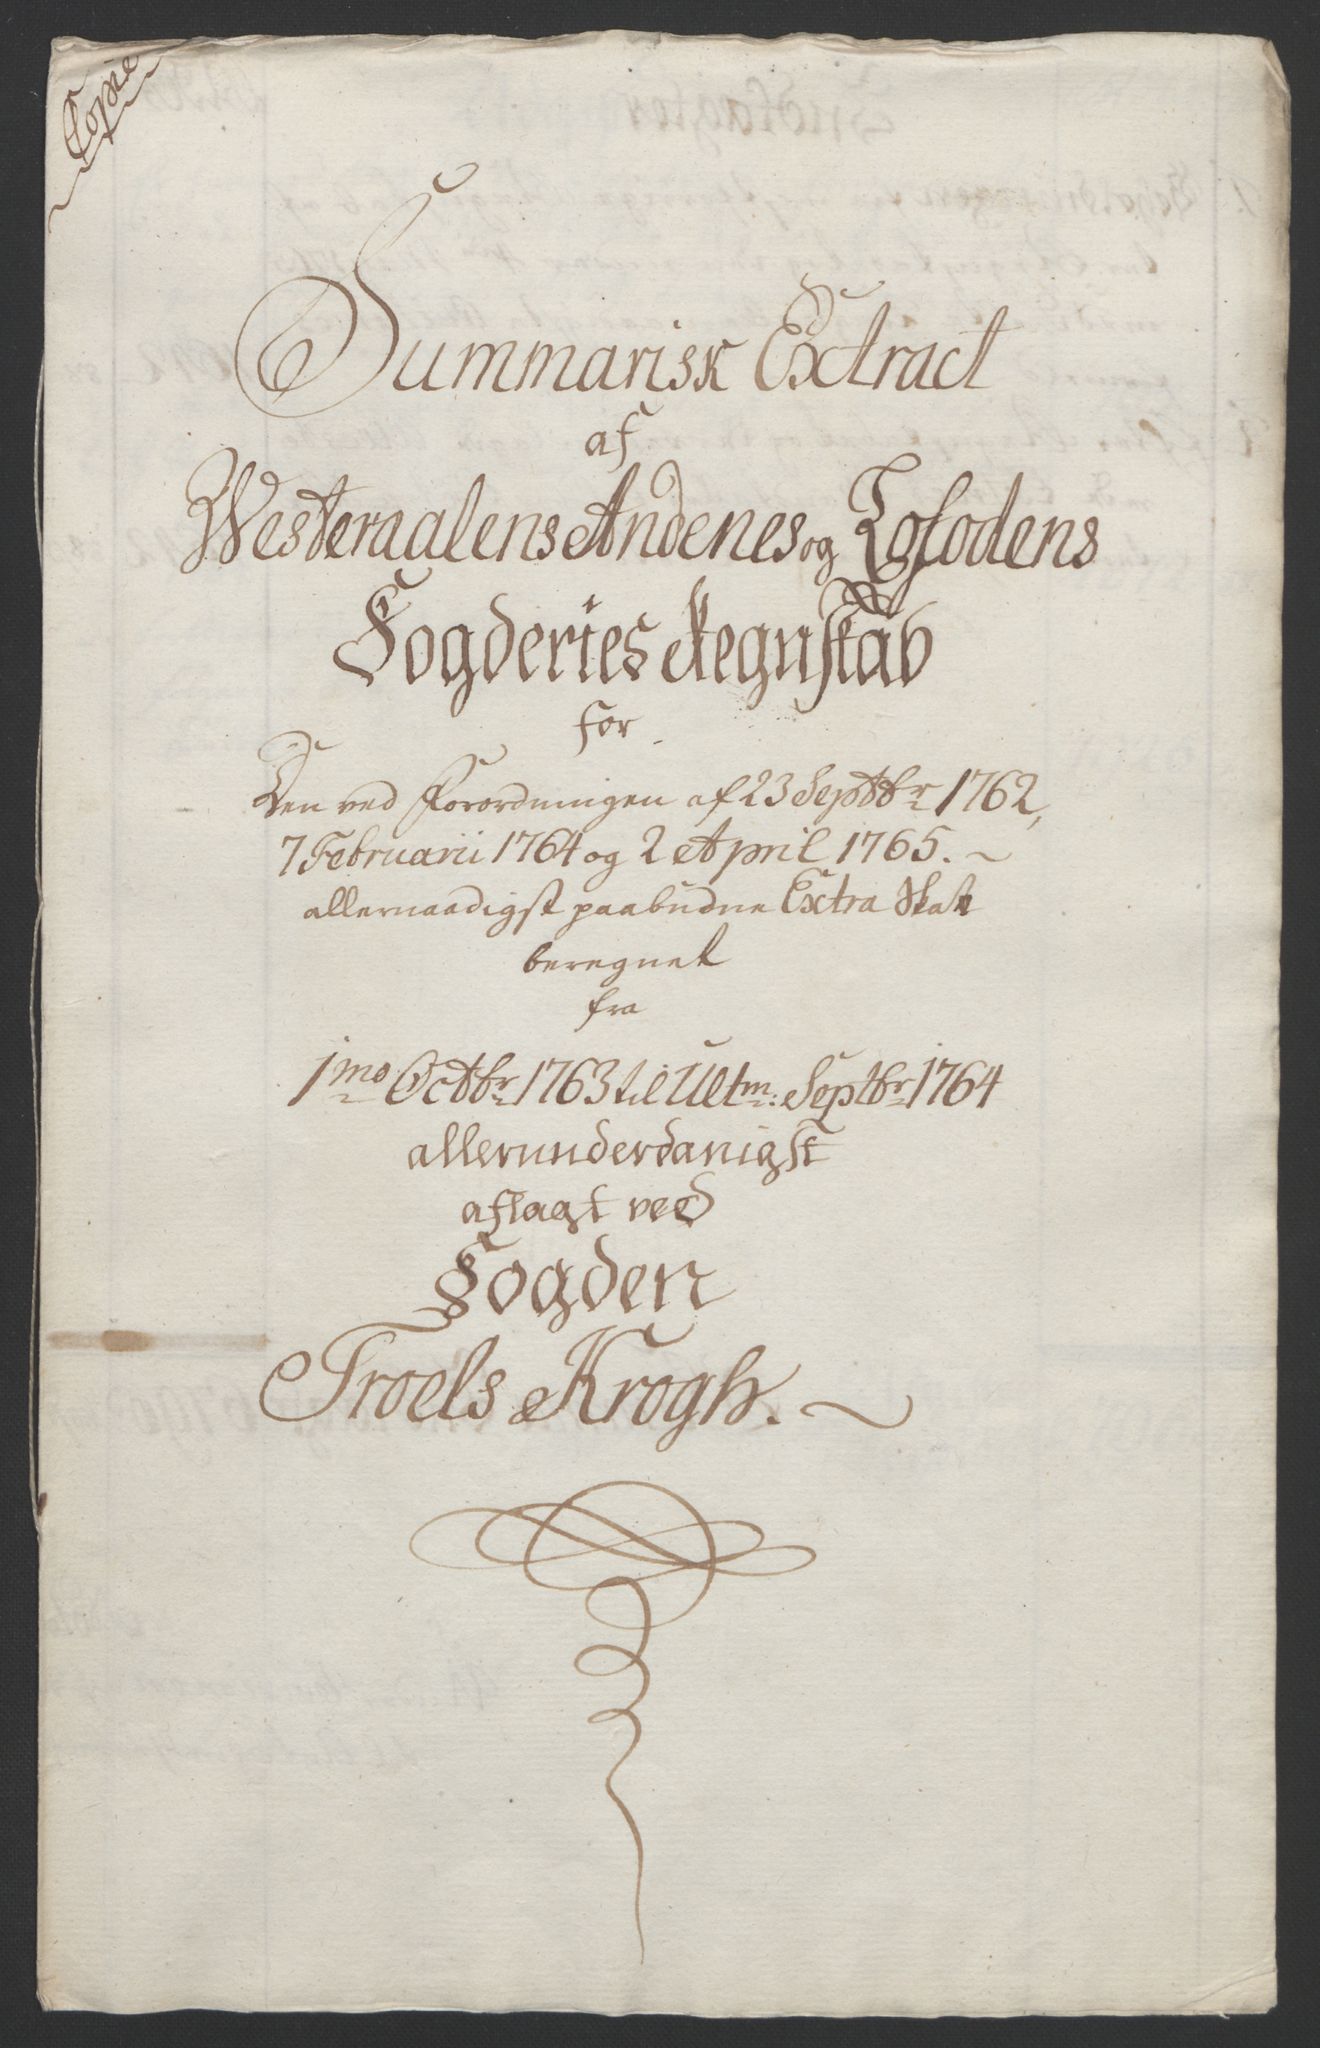 Copie
Summarisk Extract
af
Westeraalens Andenes og Lofodens
Fogderies Regnskab
for
Den ved Forordningen af 23 Septbr 1762,
7 Februarii 1764 og 2 April 1765. ~
allernaadigst paabudne Extra Skatt
beregnet
fra
1mo Octbr 1763 til Ultm: Septbr 1764
allerunderdanigst
aflagt ved
Fogden
Troels Krogh. ~